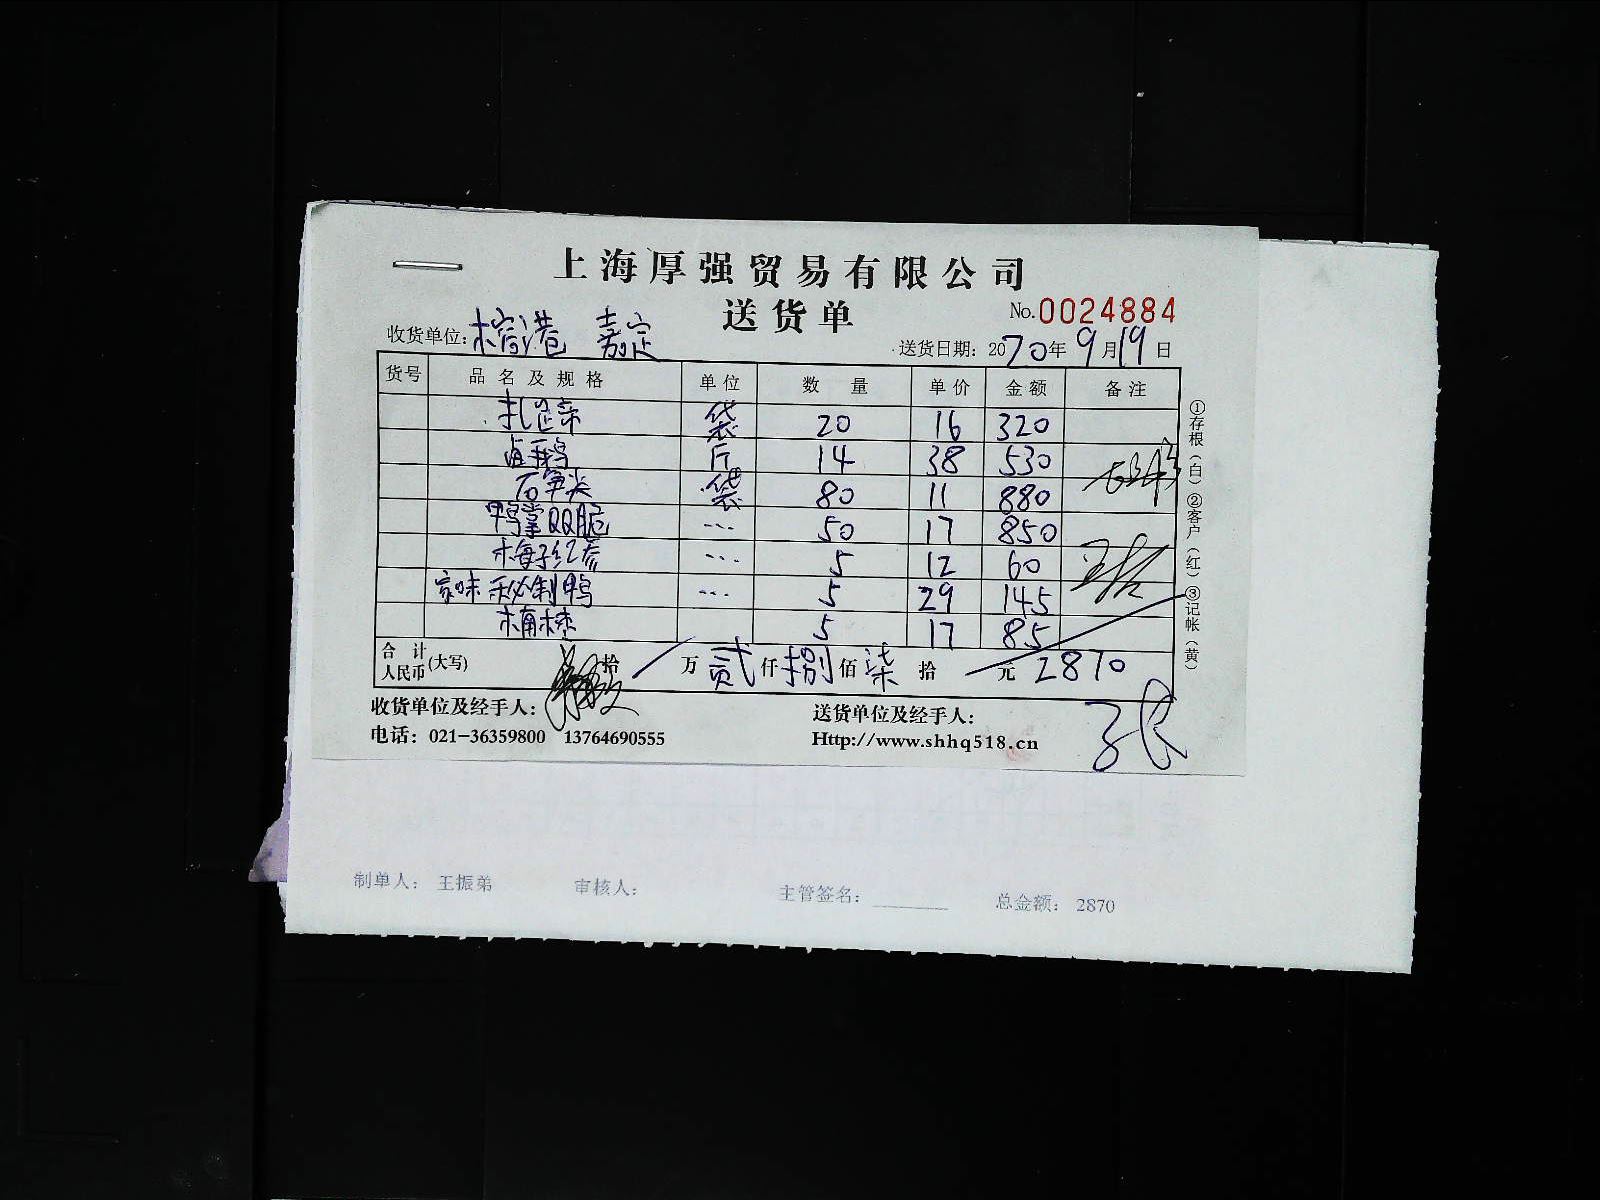 上海厚强贸易有限公司
送货单
No.0024884
收货单位: 榕港 嘉定
送货日期: 2020年9月19日
货号 品名及规格 单位 数量 单价 金额 备注
袋 20 16 320
卤鹅 斤 14 38 530
石笋尖 袋 80 11 880
鸭掌QQ脆 ... 50 17 850
梅子红参 ... 5 12 60
家味秘制鸭 ... 5 29 145
5 17 85
合计人民币(大写) 拾 万 贰仟捌佰柒拾 元 2870
收货单位及经手人:
送货单位及经手人: 张
电话: 021-36359800 13764690555
Http://www.shhq518.cn
①存根(白)②客户(红)③记帐(黄)
制单人: 王振弟 审核人: 主管签名: 总金额: 2870